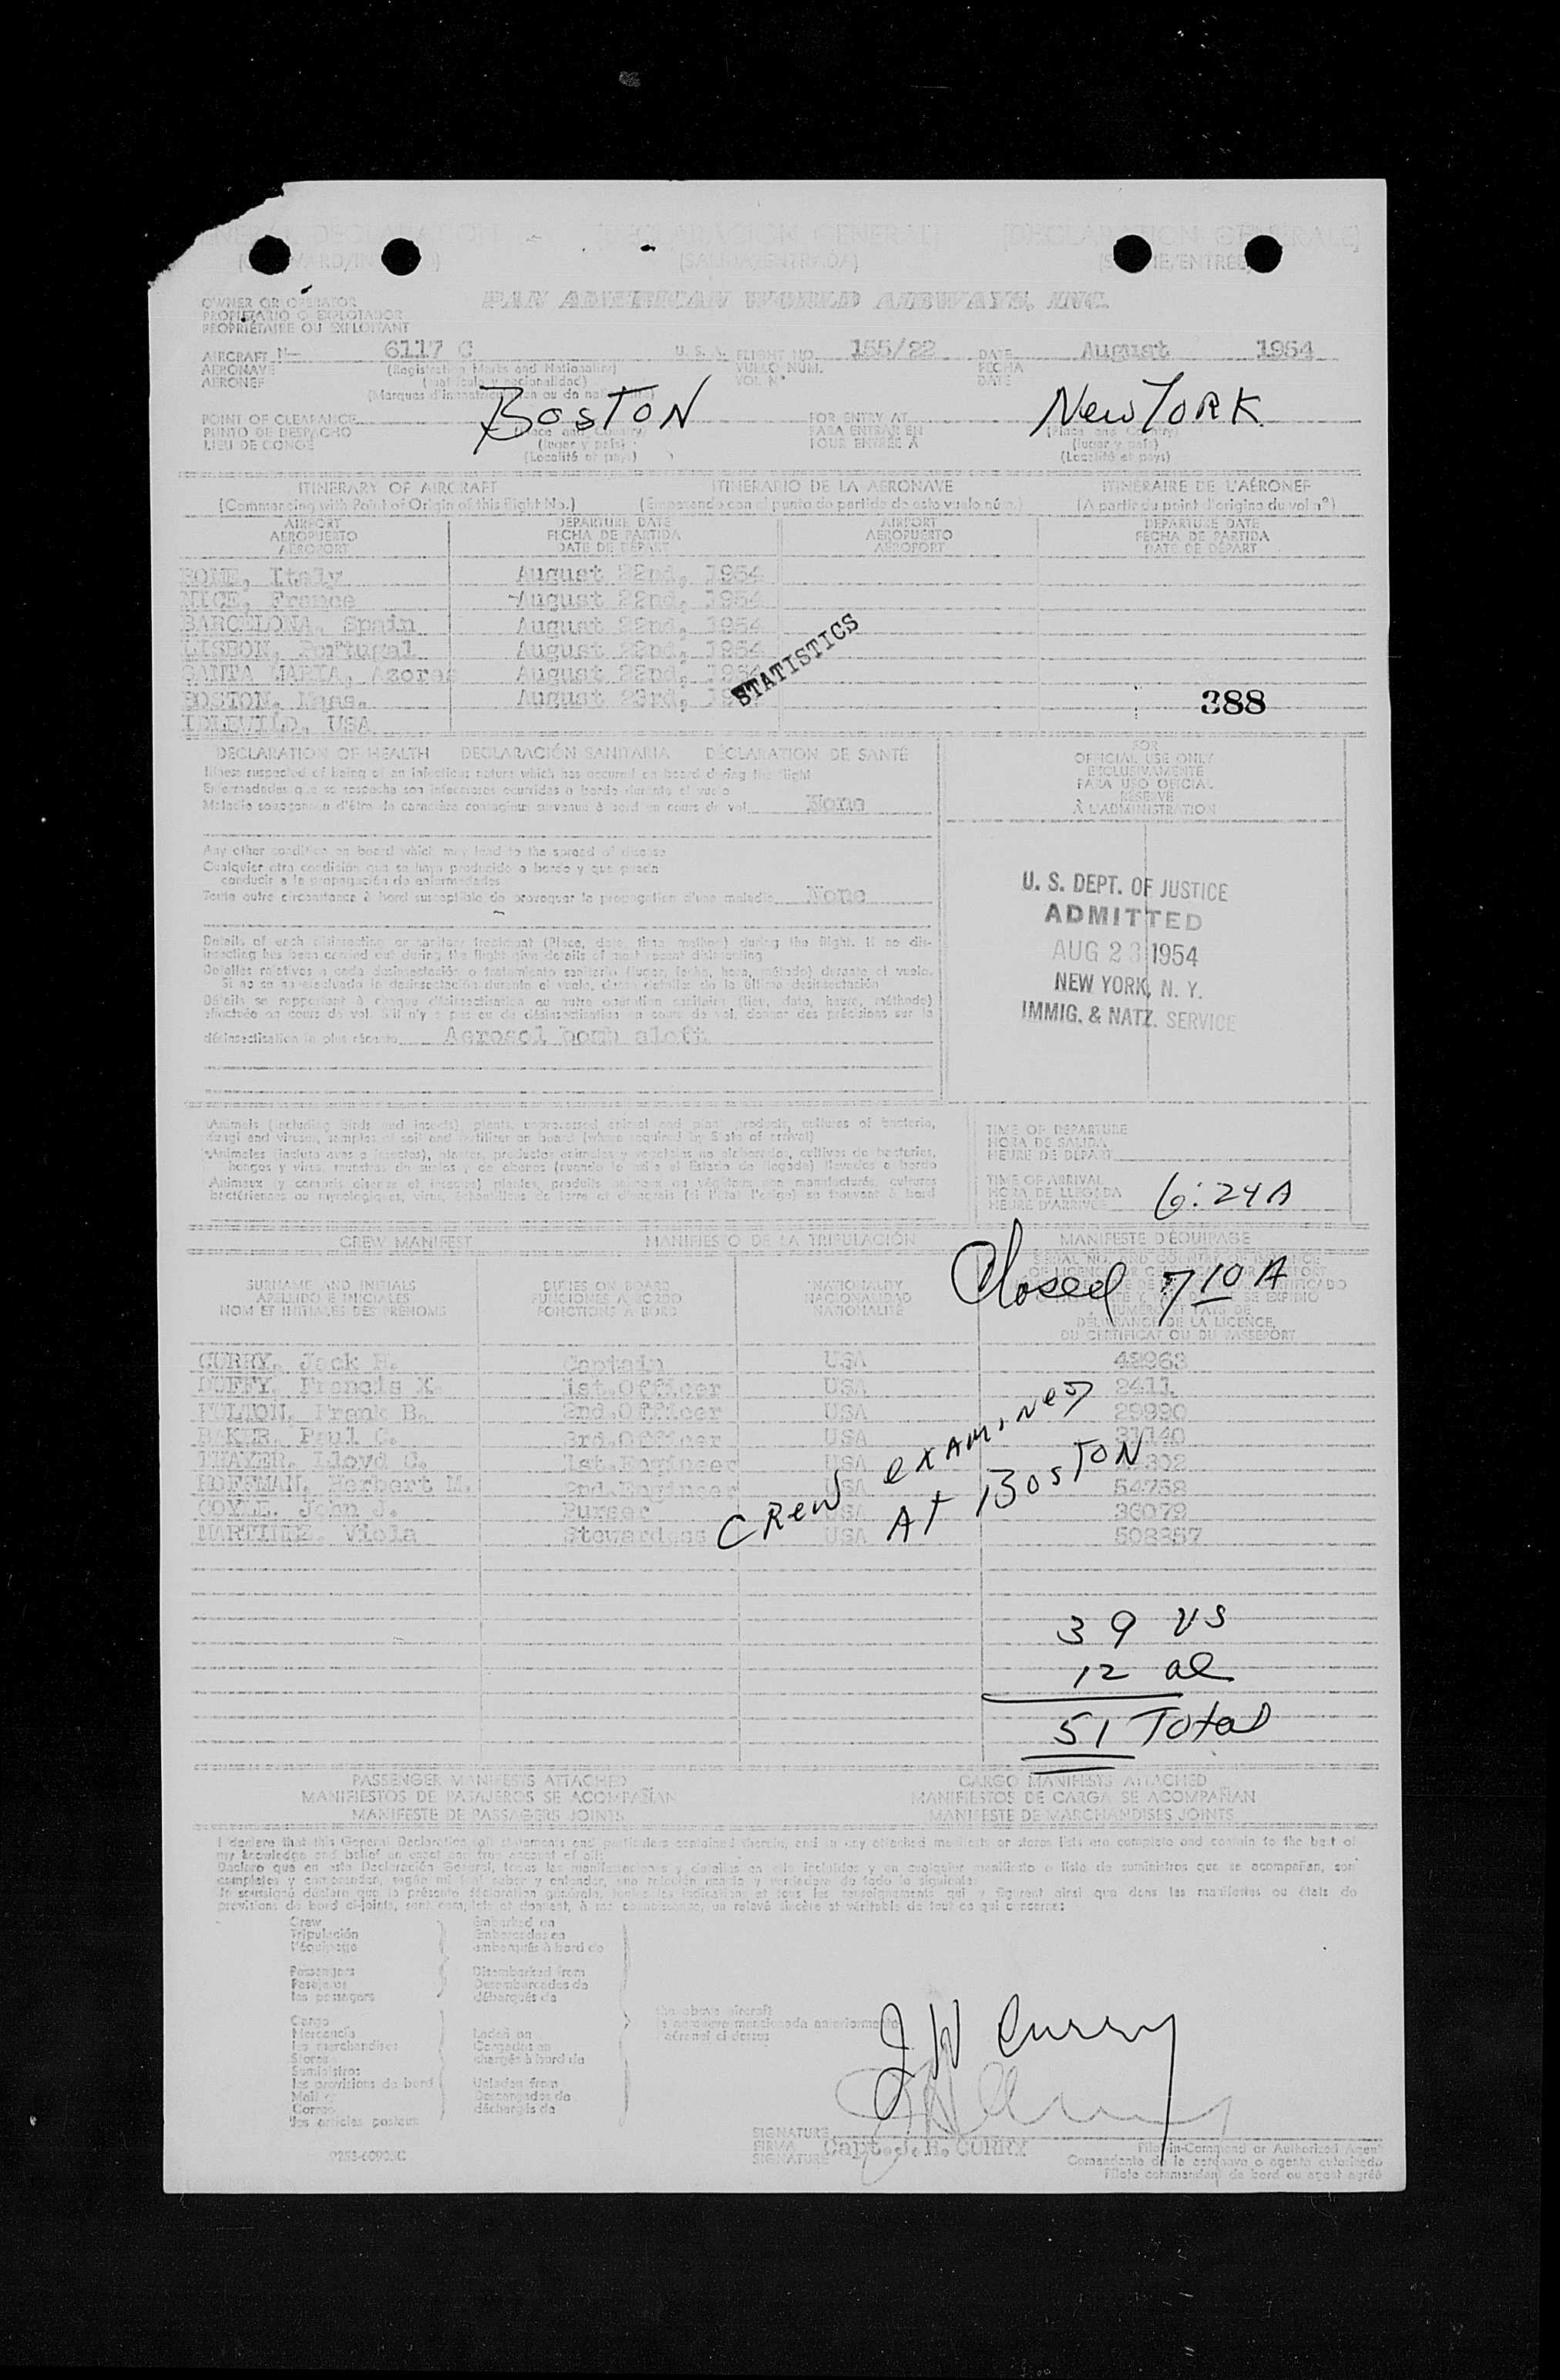 DECLARATION [DECLARACIÓN GENERAL] [DÉCLARATION GÉNÉRALE]
(SALIDA/ENTRADA)
OWNER OR OPERATOR PAN AMERICAN WORLD AIRWAYS, INC.
PROPIETARIO O EXPLOTADOR
PROPRIÉTAIRE OU EXPLOITANT
AIRCRAFT N— 6117 C U. S. A. FLIGHT NO. 155/22 DATE August 1954
AERONAVE (Registration Marks and Nationality) VUELO NUM. FECHA
AERONEF (matrícula y nacionalidad) VOL Nº DATE
POINT OF CLEARANCE BOSTON FOR ENTRY AT New YORK
PUNTO DE DESPACHO PARA ENTRAR EN (Place and Country)
LIEU DE CONGÉ (lugar y país) POUR ENTRÉE À (lugar y país)
(Localité et pays) (Localité et pays)
ITINERARY OF AIRCRAFT ITINERARIO DE LA AERONAVE ITINÉRAIRE DE L'AÉRONEF
(Commencing with Point of Origin of this flight No.) (Empezando con el punto de partida de este vuelo núm.) (A partir du point d'origine du vol nº)
AIRPORT DEPARTURE DATE AIRPORT DEPARTURE DATE
AEROPUERTO FECHA DE PARTIDA AEROPUERTO FECHA DE PARTIDA
AÉROPORT DATE DE DÉPART AÉROPORT DATE DE DÉPART
ROME, Italy August 22nd, 1954
NICE, France August 22nd, 1954
BARCELONA, Spain August 22nd, 1954
LISBON, Portugal August 22nd, 1954
SANTA MARIA, Azores August 22nd, 1954
BOSTON, Mass. August 23rd, 19
IDLEWILD, USA
STATISTICS
388
DECLARATION OF HEALTH DECLARACIÓN SANITARIA DÉCLARATION DE SANTÉ
Illness suspected of being of an infectious nature which has occurred on board during the flight
Enfermedades que se sospecha son infecciosas ocurridas a bordo durante el vuelo
Maladie soupçonnée d'être de caractère contagieux survenue à bord en cours de vol None
Any other condition on board which may lead to the spread of disease
Cualquier otra condición que se haya producido a bordo y que pueda
conducir a la propagación de enfermedades
Toute autre circonstance à bord susceptible de provoquer la propagation d'une maladie None
Details of each disinsecting or sanitary treatment (Place, date, time, method) during the flight. If no dis-
insecting has been carried out during the flight give details of most recent disinsecting
Detalles relativos a cada desinsectación o tratamiento sanitario (lugar, fecha, hora, método) durante el vuelo.
Si no se ha efectuado la desinsectación durante el vuelo, dense detalles de la última desinsectación
Détails se rapportant à chaque désinsectisation ou autre opération sanitaire (lieu, date, heure, méthode)
effectuée en cours de vol. S'il n'y a pas eu de désinsectisation en cours de vol, donner des précisions sur la
désinsectisation la plus récente Aerosol bomb aloft
FOR
OFFICIAL USE ONLY
EXCLUSIVAMENTE
PARA USO OFICIAL
RÉSERVÉ
À L'ADMINISTRATION
U. S. DEPT. OF JUSTICE
ADMITTED
AUG 23 1954
NEW YORK, N. Y.
IMMIG. & NATZ. SERVICE
Animals (including birds and insects), plants, unprocessed animal and plant products, cultures of bacteria,
fungi and viruses, samples of soil and fertilizer on board (where required by State of arrival)
Animales (incluto aves e insectos), plantas, productos animales y vegetales no elaborados, cultivos de bacterias,
hongos y virus, muestras de suelos y de abonos (cuando lo exija el Estado de llegada) llevados a bordo
Animaux (y compris oiseaux et insectes) plantes, produits animaux ou végétaux non manufacturés, cultures
bactériennes ou mycologiques, virus, échantillons de terre et d'engrais (si l'état l'exige) se trouvant à bord
TIME OF DEPARTURE
HORA DE SALIDA
HEURE DE DÉPART
TIME OF ARRIVAL
HORA DE LLEGADA
HEURE D'ARRIVÉE 6:24 A
CREW MANIFEST MANIFIESTO DE LA TRIPULACIÓN MANIFESTE D'ÉQUIPAGE
Closed 7 10 A
SURNAME AND INITIALS DUTIES ON BOARD NATIONALITY
APELLIDO E INICIALES FUNCIONES A BORDO NACIONALIDAD
NOM ET INITIALES DES PRÉNOMS FONCTIONS À BORD NATIONALITÉ
NUMÉRO ET PAYS DE
DÉLIVRANCE DE LA LICENCE,
DU CERTIFICAT OU DU PASSEPORT
CURRY, Jack H. Captain USA 49963
DUFFY, Francis X. 1st.Officer USA 2411
FULTON, Frank B. 2nd.Officer USA 29990
BAKER, Paul C. 3rd.Officer USA 31140
THAYER, Lloyd C. 1st.Engineer USA
HOFFMAN, Herbert M. 2nd.Engineer USA 54758
COYLE, John J. Purser USA 36079
MARTINEZ, Viola Stewardess USA 508357
CREW EXAMINED
AT BOSTON
39 US
12 al
51 Total
PASSENGER MANIFESTS ATTACHED CARGO MANIFESTS ATTACHED
MANIFIESTOS DE PASAJEROS SE ACOMPAÑAN MANIFIESTOS DE CARGA SE ACOMPAÑAN
MANIFESTE DE PASSAGERS JOINTS MANIFESTE DE MARCHANDISES JOINTS
I declare that this General Declaration, all statements and particulars contained therein, and in any attached manifests or stores lists are complete and contain to the best of
my knowledge and belief an exact and true account of all:
Declaro que en esta Declaración General, todas las manifestaciones y detalles en ella incluidos y en cualquier manifiesto o lista de suministros que se acompañan, son
completos y comprenden, según mi leal saber y entender, una relación exacta y verdadera de todo lo siguiente:
Je soussigné déclare que la présente déclaration générale, toutes les indications et tous les renseignements qui y figurent ainsi que dans les manifestes ou états de
provisions de bord ci-joints, sont complets et donnent, à ma connaissance, un relevé sincère et véritable de tout ce qui concerne:
Crew Embarked on
Tripulación Embarcados en
l'équipage embarqués à bord de
Passengers Disembarked from
Pasajeros Desembarcados de
les passagers débarqués de
the above aircraft
la aeronave mencionada anteriormente
l'aéronef ci-dessus
Cargo
Mercancía Laden on
les marchandises Cargados en
Stores chargés à bord de
Suministros
les provisions de bord Unladen from
Mail Descargados de
Correo déchargés de
les articles postaux
J H Curry
SIGNATURE
FIRMA Capt. J. H. CURRY
SIGNATURE
Pilot-in-Command or Authorized Agent
Comandante de la aeronave o agente autorizado
Pilote commandant de bord ou agent agréé